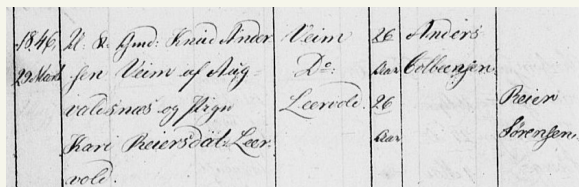 1846, U. & Gmd. Knud Ander Veim 26 Anders
29 Marts sen Veim af Aug- Do: Aar Colbensen.
valdsnæs og Pign Leervold. 26 Reier
Kari Reiersdat. Leer Aar Sørensen.
vold.